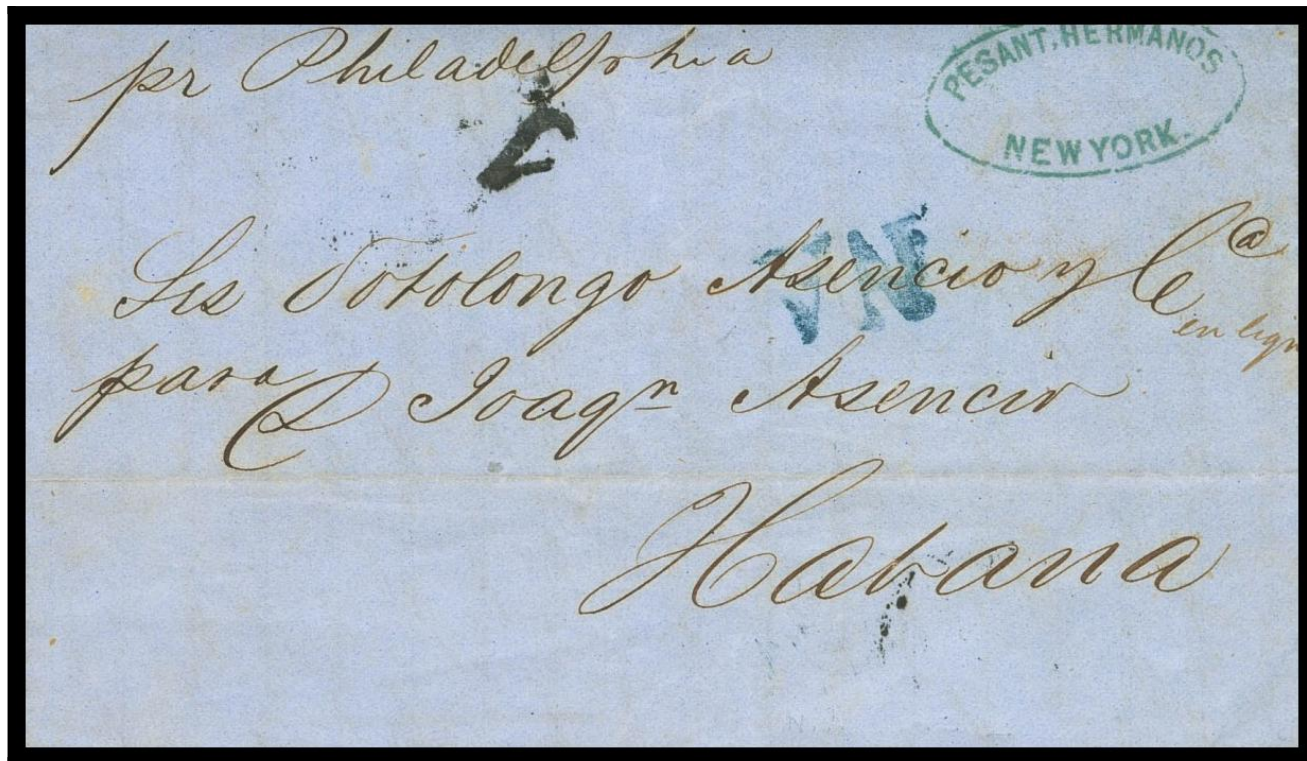 pr Philadelphia
PESANT, HERMANOS
NEW YORK
Srs Sotolongo Asencio y Ca
en liqn
NA
para D Joaqn Asencio
Habana